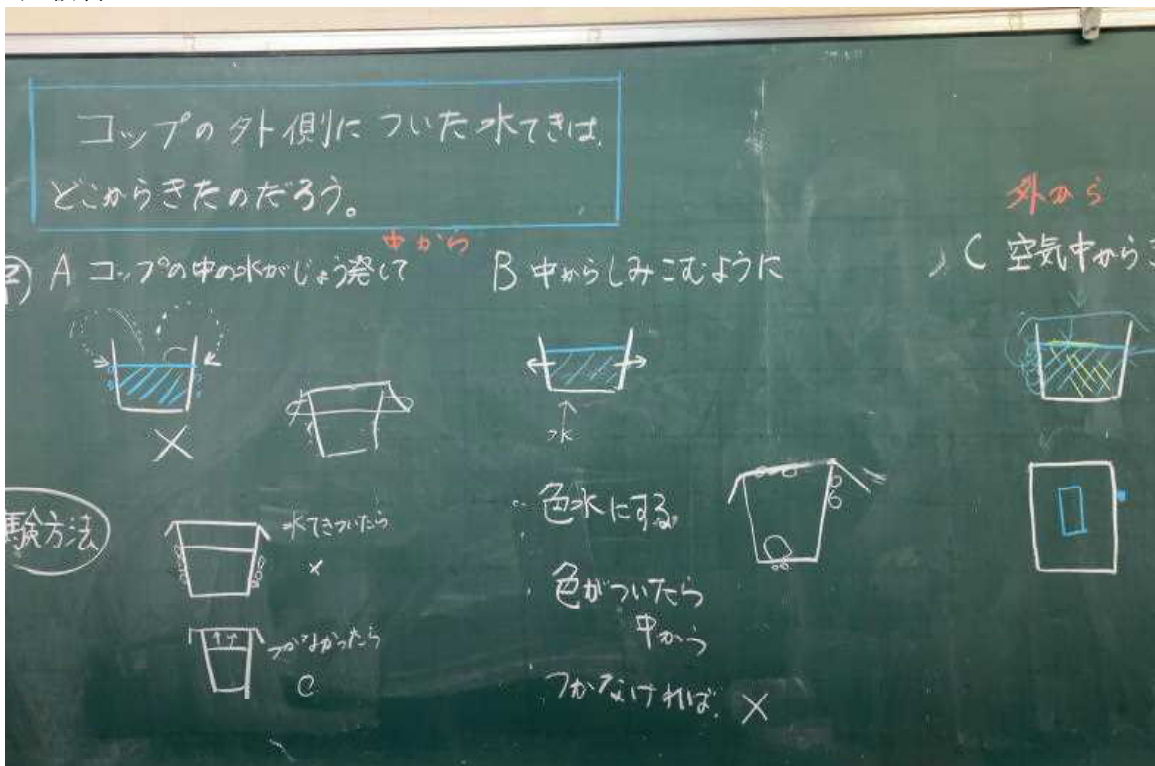 コップの外側についた水てきは、
どこからきたのだろう。
中から
A コップの中の水がじょう発して
B 中からしみこむように
外から
C 空気中から
水
×
験方法
水てきついたら
×
つかなかったら
C
色水にする。
色がついたら
中から
つかなければ ×